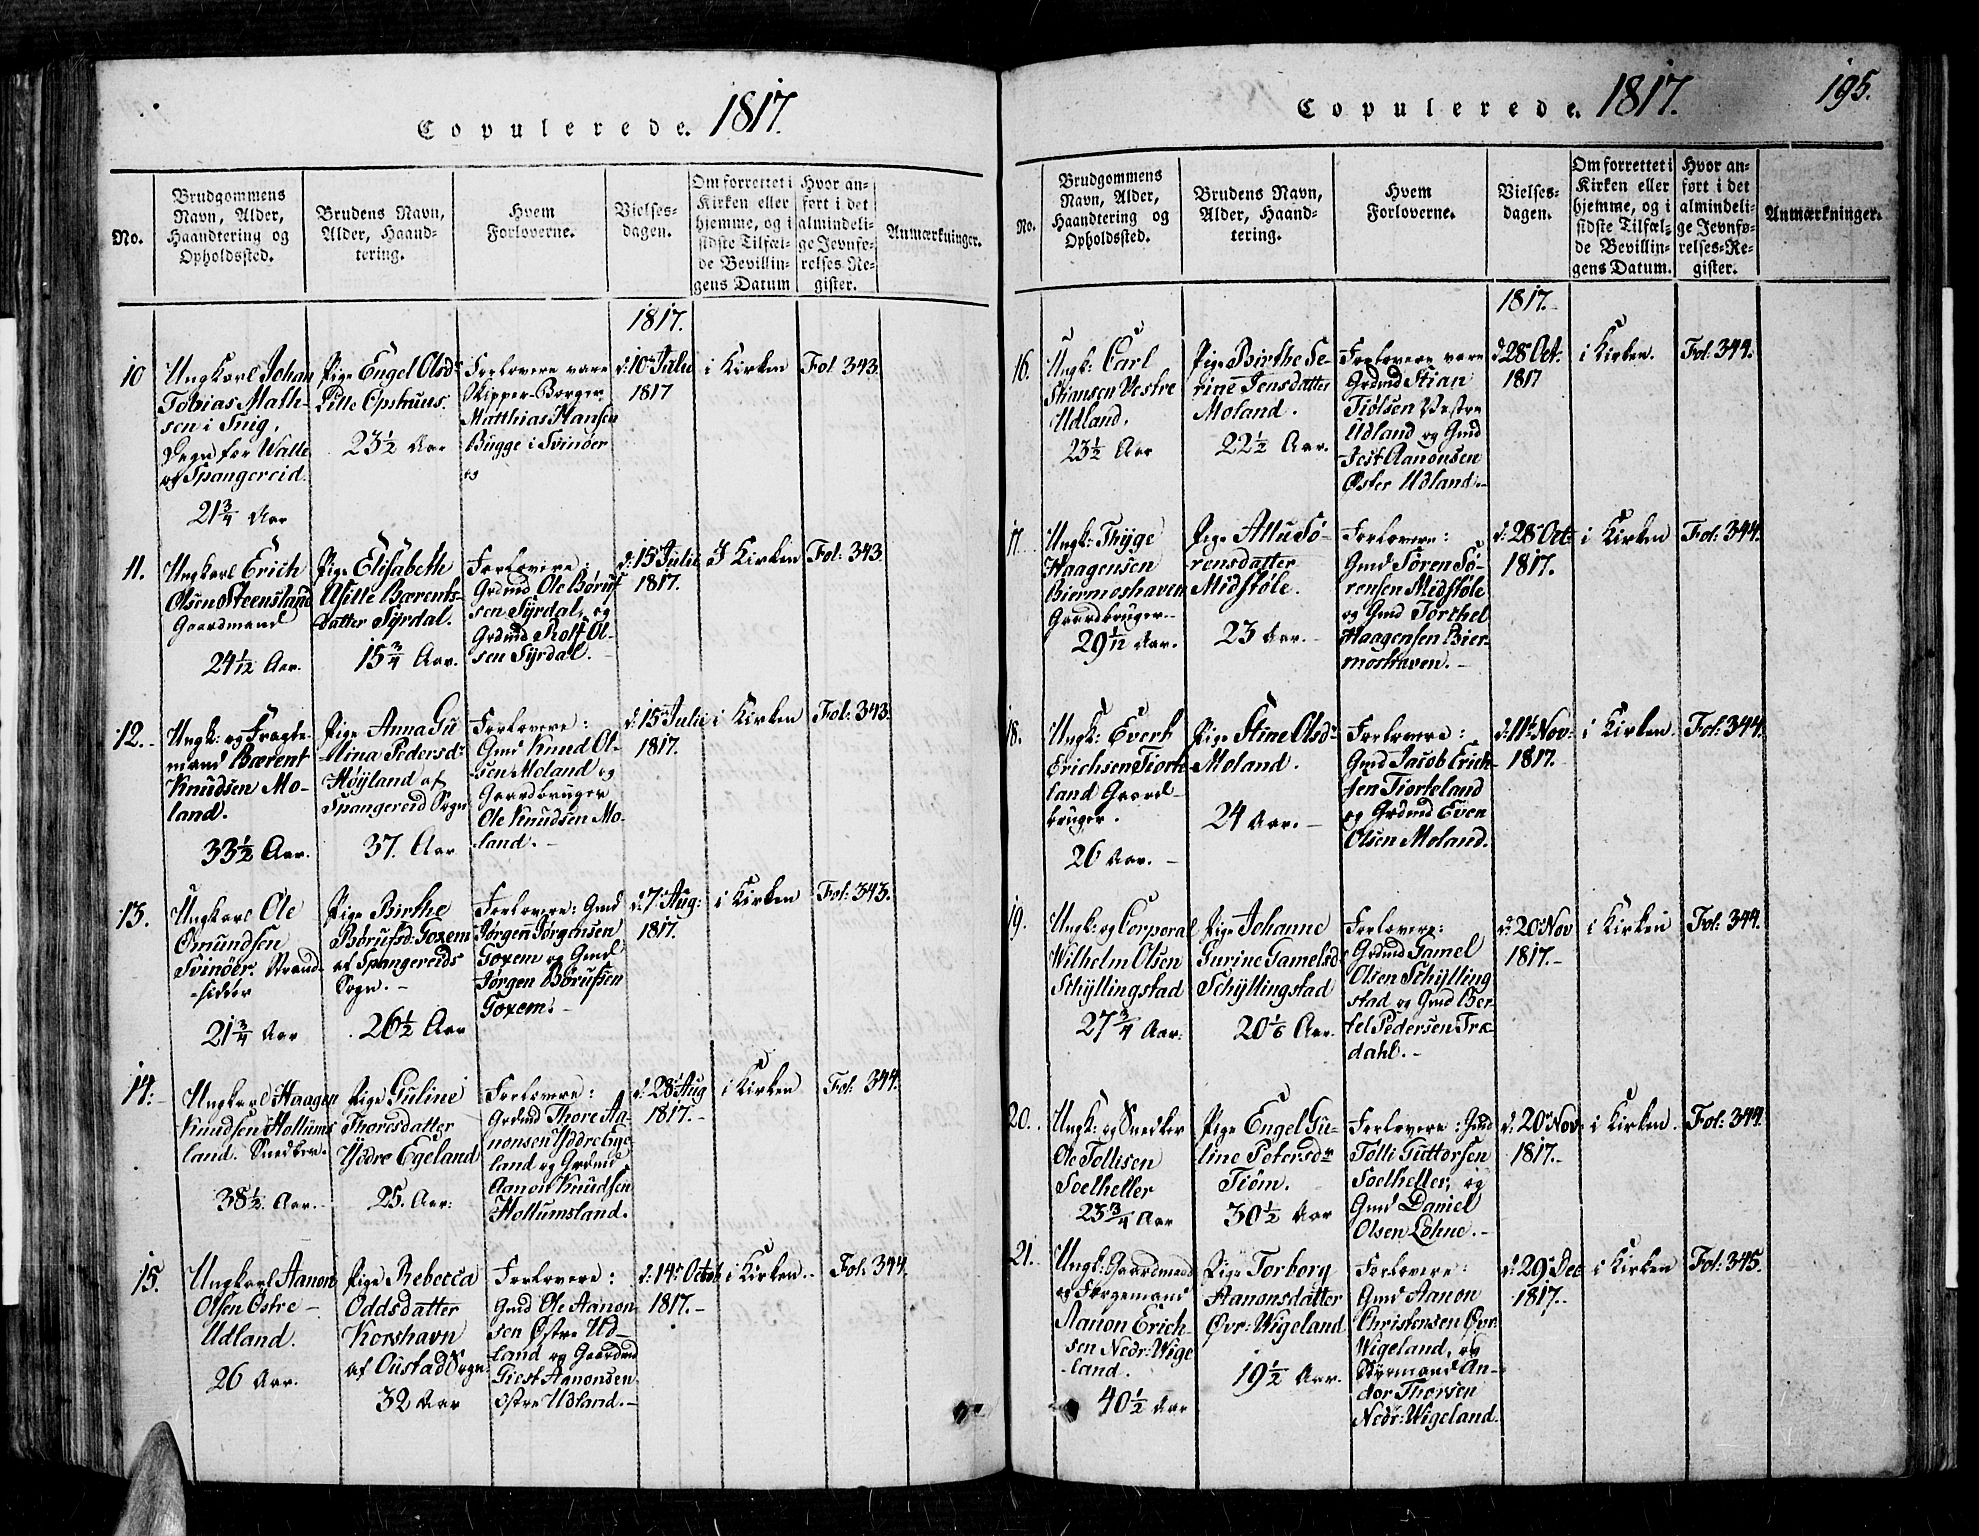 Copulerede. 1817.
No.
Brudgommens
Navn, Alder,
Haandtering og
Opholdssted.
Brudens Navn,
Alder, Haand-
tering.
Hvem
Forloverne.
Vielses-
dagen.
Om forrettet i
Kirken eller
hjemme, og i
sidste Tilfæl-
de Bevillin-
gens Datum
Hvor an-
ført i det
almindeli-
ge Jevnfø-
relses-Re-
gister.
Anmærkninger.
1817.
10
Ungkarl Johan
Tobias Math-
sen i Snig,
Degn for Walle
og Spangereid.
21 3/4 Aar
Pige Engel Olsdr
Lille Opstruus.
23 1/2 Aar
Forlovere vare
Skipper-Borger
Matthias Hansen
Bugge i Svinøer
og
d: 10de Julii
1817
i Kirken
Fol 343.
11.
Ungkarl Erich
Olsen Steensland
Gaardmand
24 1/12 Aar.
Pige Elisabeth
Asille Bærents-
datter Syrdal.
15 3/4 Aar.
Forlovere:
Grdmd Ole Børuf-
sen Syrdal, og
Grdmd Rolf Ol-
sen Syrdal.
d: 15de Julii
1817.
I Kirken
Fol: 343
12.
Ungk: og Fragte-
mand Bærent
Knudsen Mo-
land.
33 1/2 Aar.
Pige Anna Gu
lina Pedersdr
Høyland af
Spangereid Sogn
37. Aar
Forlovere:
Gmd Knud Ol-
sen Moland og
Gaardbruger
Ole Knudsen Mo-
land.
d: 15de Julii
1817.
i Kirken
Fol: 343.
13.
Ungkarl Ole
Osmundsen
Svinöer. Strand-
sidder
21 3/4 Aar
Pige Birthe
Børufsd: Goxem
af Spangereids
Sogn.
26 1/2 Aar
Forlovere: Gmd
Jørgen Jørgensen
Goxem og Gmd
Jørgen Børufsen
Goxem.
d: 7de Aug:
1817.
i Kirken
Fol: 343.
14.
Ungkarl Haagen
Knudsen Hollums
land. Snedker.
38 1/2 Aar.
Pige Guline
Thoresdatter
Ydre Egeland
25. Aar.
Forlovere:
Grdmd Thore Aa-
nonsen Ydre Ege-
land og Grdmd
Aanon Knudsen
Hollumsland.
d: 28de Aug
1817.
i Kirken
Fol: 344.
15.
Ungkarl Aanon
Olsen Østre
Udland.
26 Aar.
Pige Rebecca
Oddsdatter
Korshavn
af Oustad Sogn.
32 Aar
Forlovere:
Gmd Ole Aanon-
sen Østre Ud-
land og Gaardmd
Giest Aanonsen
Østre Udland.
d: 14de Octob
1817.
i Kirken.
Fol: 344.
Copulerede. 1817.
195.
No.
Brudgommens
Navn, Alder,
Haandtering og
Opholdssted.
Brudens Navn,
Alder, Haand-
tering.
Hvem
Forloverne.
Vielses-
dagen.
Om forrettet i
Kirken eller
hjemme, og i
sidste Tilfæl-
de Bevillin-
gens Datum.
Hvor an-
ført i det
almindeli-
ge Jevnfø-
relses-Re-
gister.
Anmærkninger.
1817.
16.
Ungk: Carl
Stiansen Vestre
Udland.
23 1/2 Aar
Pige Birthe Se-
rine Jensdatter
Moland.
22 1/2 Aar.
Forlovere vare
Grdmd Stian
Tiølsen Vestre
Udland og Gmd
Jest Aanonsen
Øster Udland.
d: 28de Oct:
1817
i Kirken.
Fol: 344.
17.
Ungk: Thyge
Haagensen
Biermoshaven
Gaardbruger.
29 1/12 Aar.
Pige Allu Sö-
rensdatter
Midstöle.
23 Aar.
Forlovere:
Gmd Sören Sö-
rensen Midstöle
og Gmd Torkel
Haagensen Bier-
moshaven.
d: 28de Oct:
1817.
i Kirken
Fol: 344.
18.
Ungk: Evert
Erichsen Tiorte-
land Gaard-
bruger.
26 Aar.
Pige Stine Olsdr
Moland.
24 Aar.
Forlovere:
Gmd Jacob Erich-
sen Tiorteland
og Grdmd Even
Olsen Moland.
d: 11te Nov:
1817.
i Kirken.
Fol: 344.
19.
Ungk: og Corporal
Wilhelm Olsen
Schyllingstad
27 3/4 Aar.
Pige Johanne
Gurine Gamelsd
Schyllingstad
20 1/6 Aar.
Forlovere:
Grdmd Gamel
Olsen Schylling
stad og Gmd Ber-
tel Pedersen Træ
dahl.
d: 20de Nov
1817.
i Kirken
Fol: 344.
20.
Ungk: og Snedker
Ole Tollisen
Soelheller
23 3/4 Aar
Pige Engel Gu-
line Petersdr
Tiøm.
30 1/2 Aar
Forlovere: Gmd
Tolli Guttorsen
Soelheller, og
Gmd Daniel
Olsen Løhne.
d: 20de Nov.
1817.
i Kirken.
Fol: 344.
21.
Ungk: Gaardmand
og Færgemand
Aanon Erich-
sen Nedr: Wige
land.
40 1/2 Aar
Pige Torborg
Aanonsdatter
Øvr: Wigeland
19 1/2 Aar.
Forlovere:
Gmd Aanon
Christensen Øvr:
Wigeland, og
Styrmand An-
dor Thorsen
Nedr: Wigeland.
d: 29de Dec
1817.
i Kirken
Fol: 345.